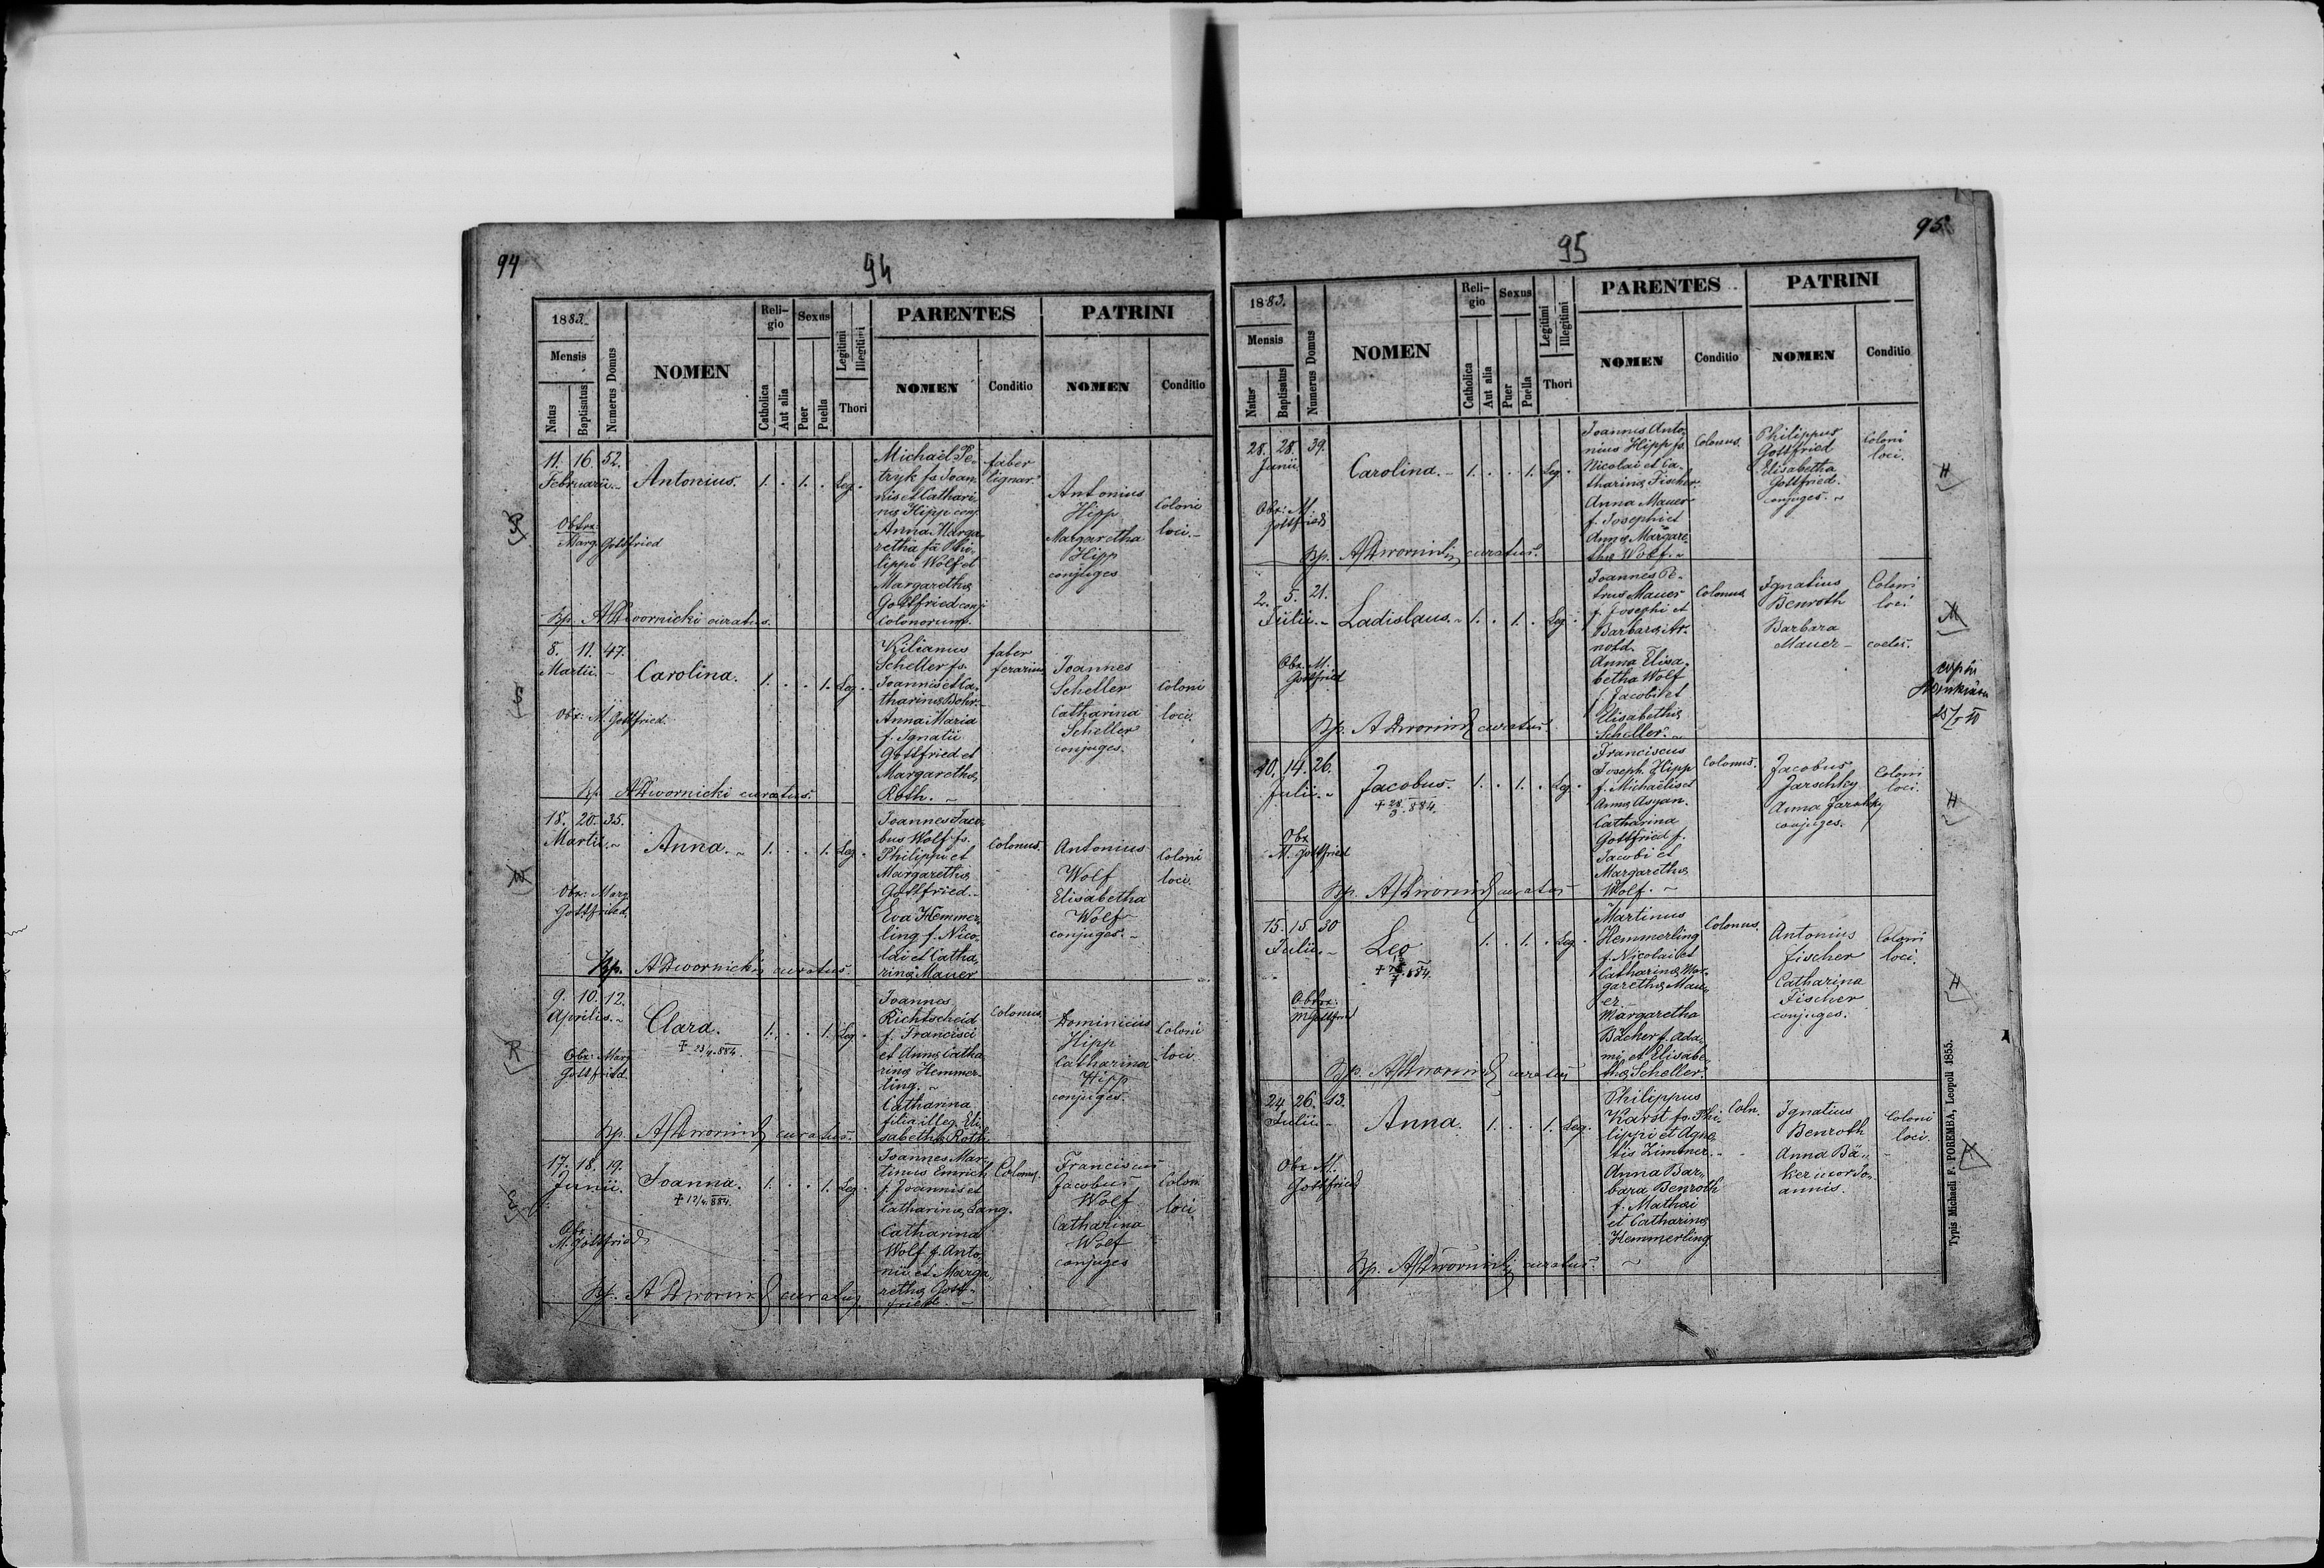 94
94
1883.
Mensis
Natus
Baptisatus
Numerus Domus
NOMEN
Reli-
gio
Catholica
Aut alia
Sexus
Puer
Puella
Legitimi
Illegitimi
Thori
PARENTES
NOMEN
Conditio
PATRINI
NOMEN
Conditio
P
11. 16. 52.
Februarii.
Obstx:
Marg. Gottfried
Antonius. 1. . 1. . Leg.
Michael Pe-
tryk fs. Joan
nis et Cathari
næ Hipp conj.
Anna Marga
retha fa Phi-
lippi Wolf et
Margarethæ
Gottfried conj
Colonorum.
faber
lignar.
Antonius
Hipp
Margaretha
Hipp
conjuges
Coloni
loci.
Bp. ADwornicki curatus.
S
8. 11. 47.
Martii.
Obx: M. Gottfried.
Carolina. 1. . . 1. Leg.
Kilianus
Scheller fs.
Joannis et Ca-
tharinæ Bohr.
Anna Maria
f. Ignatii
Gottfried et
Margarethæ
Roth.
faber
ferarius
Joannes
Scheller
Catharina
Scheller
conjuges.
Coloni
loci.
Bp ADwornicki curatus.
W
18. 20. 35.
Martii.
Obx: Marg
Gottfried.
Anna. 1. . . 1. Leg.
Joannes Jaco-
bus Wolf fs.
Philippi et
Margarethæ
Gottfried.
Eva Hemmer-
ling f. Nico-
lai et Catha-
rinæ Mauer
Colonus.
Antonius
Wolf
Elisabetha
Wolf
conjuges.
Coloni
loci.
Bp. ADwornicki curatus.
R
9. 10. 12.
Aprilis.
Obx: Marg
Gottfried.
Clara. 1. . . 1. Leg.
Joannes
Richtscheid
f. Francisci
et Annæ Catha
rinæ Hemmer-
ling.
Catharina
filia illeg. Eli-
sabethæ Roth.
Colonus.
Dominicus
Hipp
Catharina
Hipp
conjuges.
Coloni
loci.
Bp. ADwornicki curatus.
E
17. 18. 19.
Junii.
Obx:
M. Gottfried
Joanna. 1. . . 1. Leg.
Joannes Mar-
tinus Emrich
f. Joannis et
Catharinæ Lang.
Catharina
Wolf f. Anto-
nii et Marga
rethæ Gott-
fried.
Colonus.
Franciscus
Jacobus
Wolf
Catharina
Wolf
conjuges
Coloni
loci.
Bp. ADwornicki curatus.
95
95
1883.
Mensis
Natus
Baptisatus
Numerus Domus
NOMEN
Reli-
gio
Catholica
Aut alia
Sexus
Puer
Puella
Legitimi
Illegitimi
Thori
PARENTES
NOMEN
Conditio
PATRINI
NOMEN
Conditio
28. 28. 39.
Junii
Obx: M.
Gottfried
Carolina. 1. . . 1. Leg.
Joannes Anto-
nius Hipp fs.
Nicolai et Ca-
tharinæ Fischer.
Anna Mauer
f. Josephi et
Annæ Margare-
thæ Wolf.
Colonus.
Philippus
Gottfried
Elisabetha
Gottfried.
conjuges.
Coloni
loci.
H
Bp. ADwornicki curatus.
2. 5. 21.
Julii.
Obx. M.
Gottfried
Ladislaus. 1. . 1. . Leg.
Joannes Pe-
trus Mauer
f. Josephi et
Barbaræ Ar-
nold.
Anna Elisa-
betha Wolf
f. Jacobi et
Elisabethæ
Scheller.
Colonus.
Ignatius
Benroth
Barbara
Mauer
Coloni
loci
M
Bp. ADwornicki curatus.
10. 14. 26.
Julii.
Obx
M. Gottfried
Jacobus. 1. . 1. . Leg.
Franciscus
Joseph. Hipp
f. Michaelis et
Annæ Asyan.
Catharina
Gottfried f.
Jacobi et
Margarethæ
Wolf.
Colonus.
Jacobus
Jarschky
Anna Jarschky
conjuges.
Coloni
loci.
H
Bp. ADwornicki curatus
15. 15. 30
Julii.
Obstx:
M Gottfried
Leo 1. . 1. . Leg.
Martinus
Hemmerling
f. Nicolai et
Catharinæ Mar-
garethæ Mau-
er.
Margaretha
Bäcker f. Ada-
mi et Elisabe-
thæ Scheller.
Colonus.
Antonius
Fischer
Catharina
Fischer
conjuges.
Coloni
loci.
H
Bp. ADwornicki curatus
24. 26. 13.
Julii.
Obx M.
Gottfried
Anna. 1. . . 1. Leg.
Philippus
Karst fs. Phi-
lippi et Agne-
tis Zimmer.
Anna Bar-
bara Benroth
f. Mathæi
et Catharinæ
Hemmerling
Coln.
Ignatius
Benroth
Anna Bä-
ker uxor Jo-
annis.
Coloni
loci.
K
Bp. ADwornicki curatus.
Typis Michaeli F. POREMBA, Leopoli 1855.